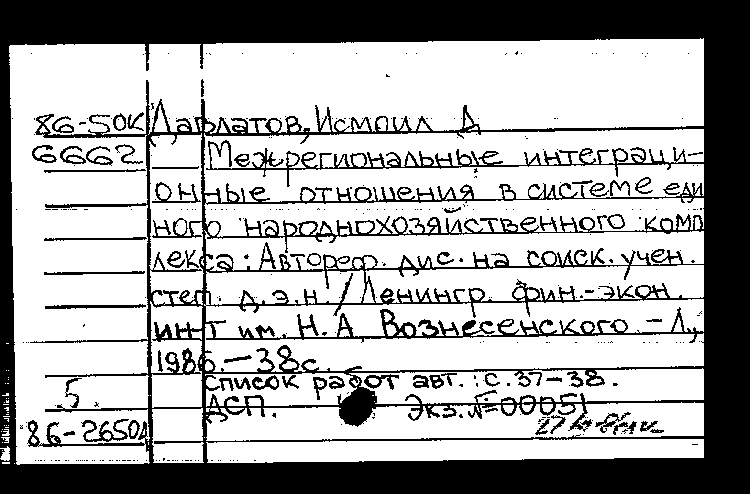 86-50К Давлатов, Исмаил Д
6662 Межрегиональные интеграци-
онные отношения в системе еди
ного народнохозяйственного комп
лекса: Автореф. дис. на соиск. учен.
степ. д.э.н. / Ленингр. фин.-экон.
ин-т им. Н.А. Вознесенского. – Л.,
1986. – 38с.
Список работ авт.: с. 37-38.
5. ДСП. Экз. №00051
86-2650